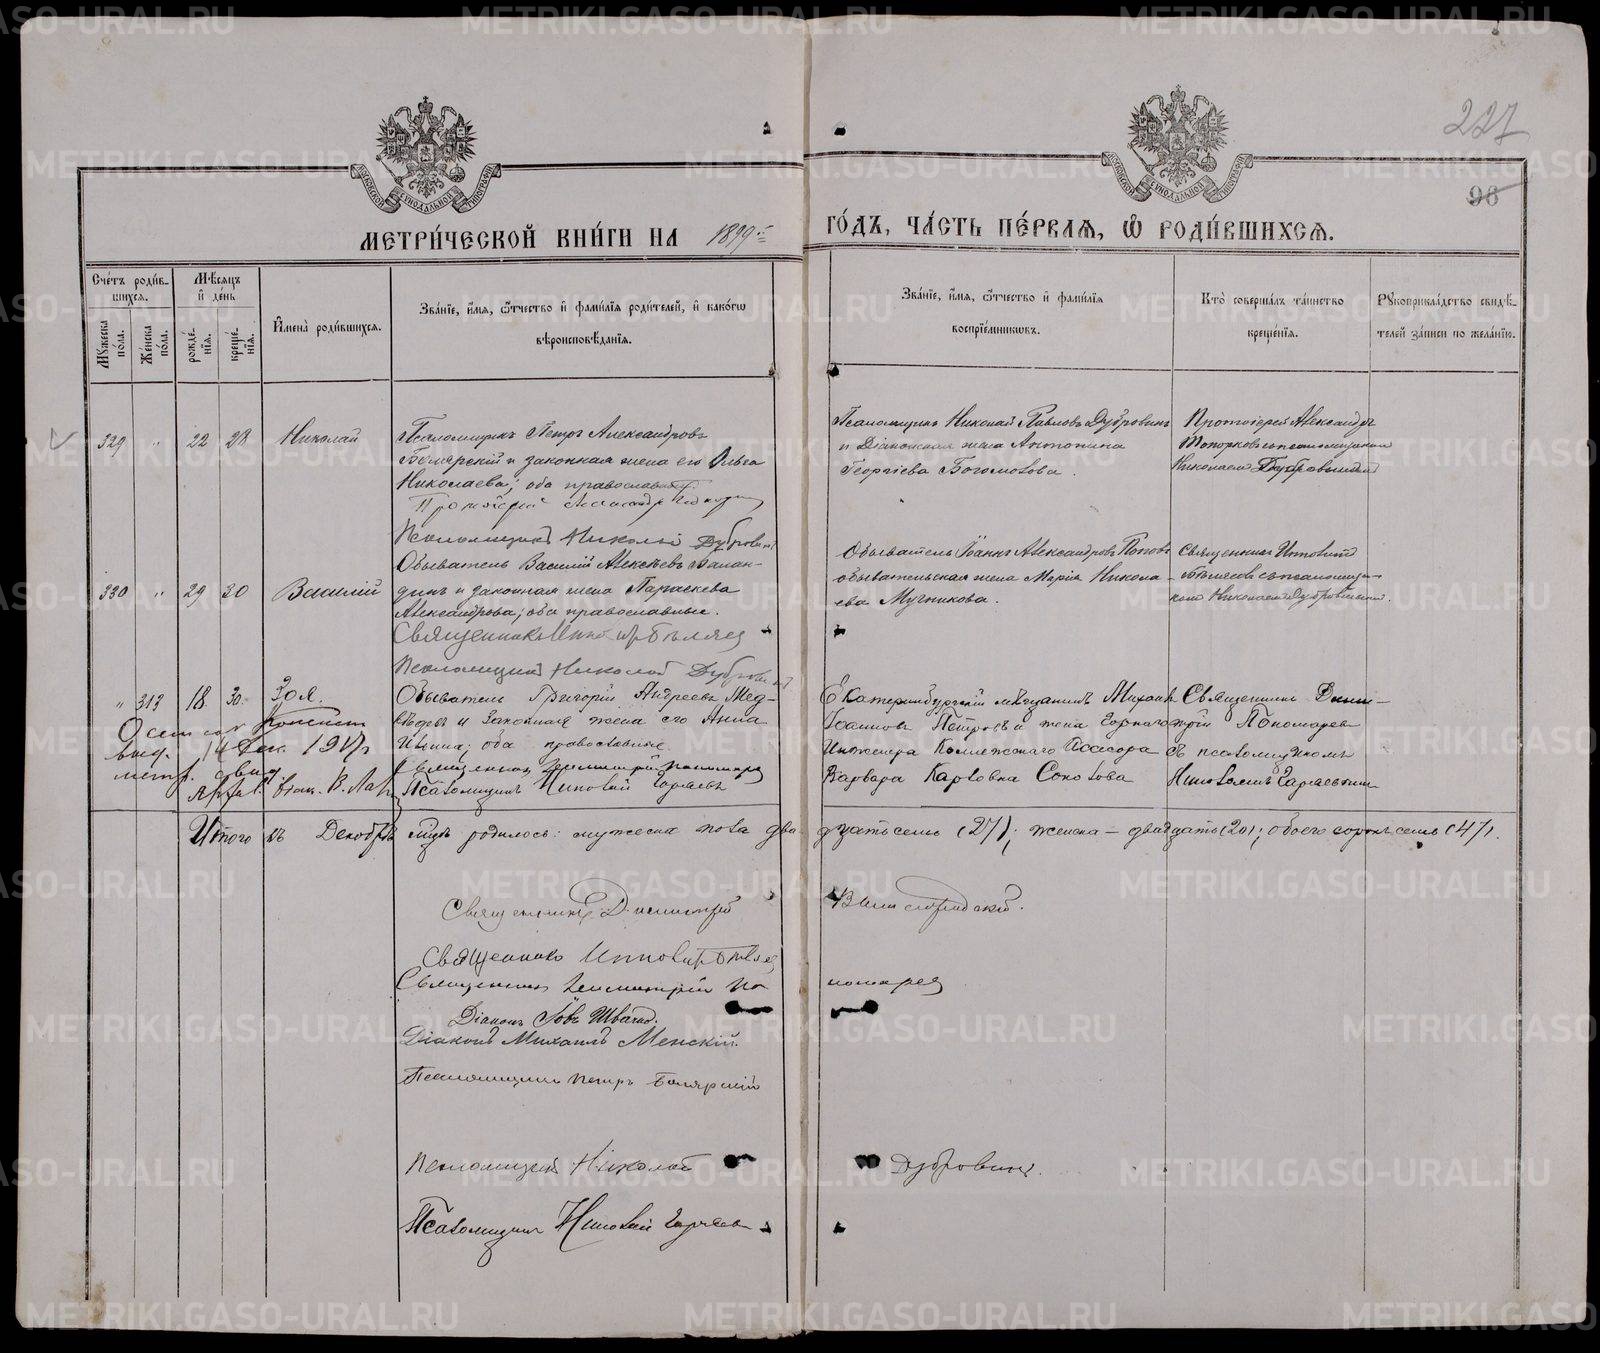 227
96
МЕТРИ́ЧЕСКОЙ КНИ́ГИ НА 1899 ГО́ДЪ, ЧА́СТЬ ПЕ́РВАЯ, Ѽ РОДИ́ВШИХСЯ.
Сче́тъ роди́в-
шихся.
Мꙋ́жеска по́ла.
Же́нска по́ла.
Мѣ́сяцъ и де́нь
рожде́-
нїя.
креще́-
нїя.
И́мена роди́вшихся.
Зва́нїе, и́мя, ѻ́тчество и фами́лїя роди́телей, и како́гѡ
вѣроисповѣ́данїя.
Зва́нїе, и́мя, ѻ́тчество и фами́лїя
воспрїе́мниковъ.
Кто̀ соверша́лъ та́инство
креще́нїя.
Рꙋкоприкла́дство свидѣ́-
телей за́писи по жела́нїю.
329 " 22 28 Николай
Псаломщикъ Петръ Александровъ
Болярскій и законная жена его Ольга
Николаева, оба православные.
Протоіерей Александръ
Псаломщикъ Николай Дубровинъ
Псаломщикъ Николай Павловъ Дубровинъ
и Діаконская жена Антонина
Георгіева Богомолова.
Протоіерей Александръ
Топорковъ съ псаломщикомъ
Николаемъ Дубровинымъ
330 " 29 30 Василій
Обыватель Василій Алексѣевъ Балан-
динъ и законная жена Параскева
Александрова, оба православные.
Священникъ
Псаломщикъ Николай Дубровинъ
Обыватель Іоаннъ Александровъ Поповъ
обывательская жена Марія Никола-
ева Мучникова.
Священникъ Ипполитъ
Бѣляевъ съ псаломщи-
комъ Николаемъ Дубровинымъ.
" 313 18 30 Зоя.
Обыватель Григорій Андреевъ Мед-
и законная жена его Анна
Ильина; оба православные.
Священникъ Димитрій Пономаревъ
Псаломщикъ Николай
Екатеринбургскій мѣщанинъ Михаилъ
Іоанновъ Петровъ и жена Горнаго
Инженера Коллежскаго Ассесора
Варвара Карловна Соколова
Священникъ Дими-
трій Пономаревъ
съ псаломщикомъ
Николаемъ
выд. 14 1917 г
метр. свид.
Итого въ Декабрѣ мцѣ родилось: мужеска пола двадцать семь (27); женска – двадцать (20); обоего сорокъ семь (47).
Священникъ Димитрій
Священникъ Ипполитъ Бѣляев
Священникъ Димитрій Пономарев
Діаконъ Іовъ
Діаконъ Михаилъ Менскій.
Псаломщикъ Петръ Болярскій
Псаломщикъ Николай Дубровинъ.
Псаломщикъ Николай
METRIKI.GASO-URAL.RU